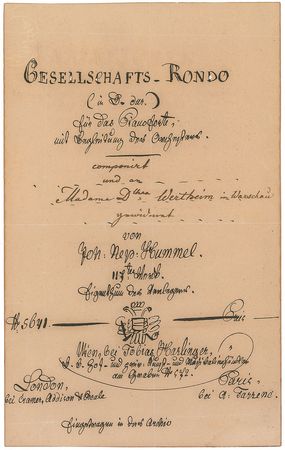 GESELLSCHAFTS-RONDO
(in D-dur.)
für das Pianoforte
mit Begleitung des Orchesters.
componirt
und an
Madame Dthea Wertheim in Warschau
gewidmet
von
Joh: Nep: Hummel.
117tes Werk.
Eigenthum des Verlegers.
No. 5641.
Wien, bei Tobias Haslinger,
k. k. Hof- und priv. Kunst- und Musikalienhändler
am Graben No. 572.
London,
bei Cramer, Addison & Beale
Paris
bei A. Farrenc.
Eingetragen in das Archiv